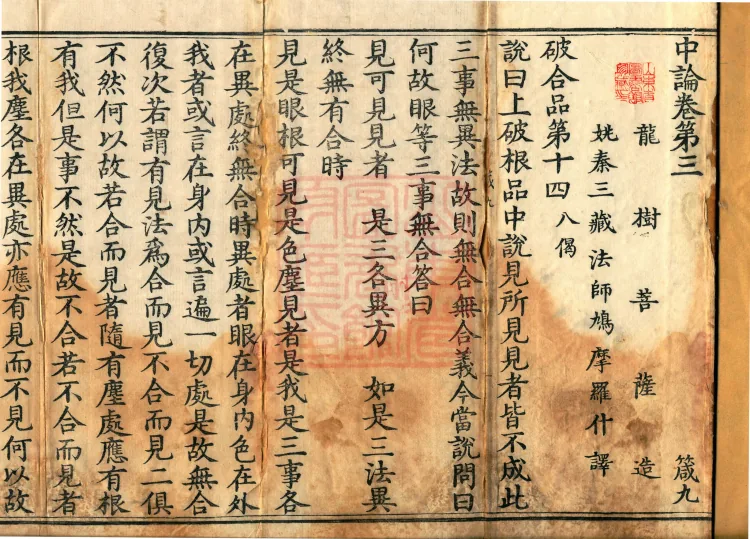 中論卷第三 箴九
龍樹菩薩造
姚秦三藏法師鳩摩羅什譯
破合品第十四 八偈
說曰上破根品中說見所見見者皆不成此
三事無異法故則無合無合義今當說問曰
何故眼等三事無合答曰
見可見見者 是三各異方 如是三法異
終無有合時
見是眼根可見是色塵見者是我是三事各
在異處終無合時異處者眼在身內色在外
我者或言在身內或言遍一切處是故無合
復次若謂有見法爲合而見不合而見二俱
不然何以故若合而見者隨有塵處應有根
有我但是事不然是故不合若不合而見者
根我塵各在異處亦應有見而不見何以故